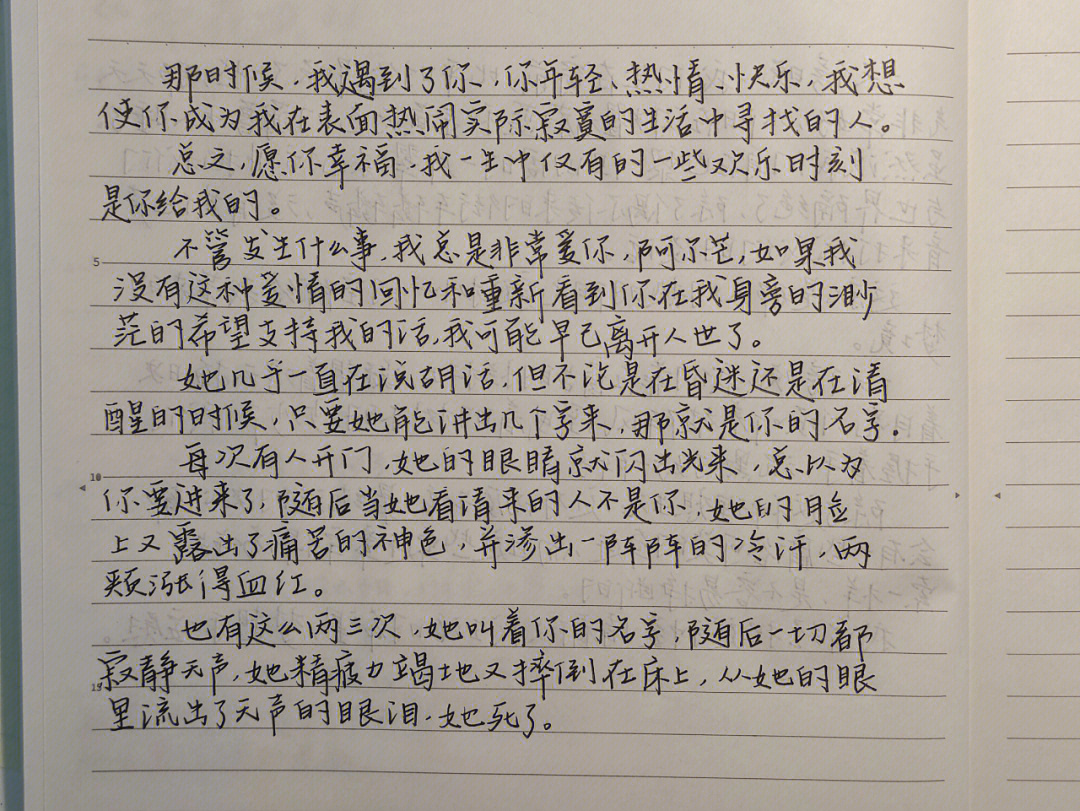 那时候，我遇到了你，你年轻、热情、快乐，我想
使你成为我在表面热闹实际寂寞的生活中寻找的人。
总之，愿你幸福，我一生中仅有的一些欢乐时刻
是你给我的。
不管发生什么事，我总是非常爱你，阿尔芒，如果我
5
没有这种爱情的回忆和重新看到你在我身旁的渺
茫的希望支持我的话，我可能早已离开人世了。
她几乎一直在说胡话，但不论是在昏迷还是在清
醒的时候，只要她能讲出几个字来，那就是你的名字.
每次有人开门，她的眼睛就闪出光来，总以为
10
你要进来了，随后当她看清来的人不是你，她的脸
上又露出了痛苦的神色，并渗出一阵阵的冷汗，两
颊涨得血红。
也有这么两三次，她叫着你的名字，随后一切都
寂静无声，她精疲力竭地又摔倒在床上，从她的眼
15
里流出了无声的眼泪.她死了。